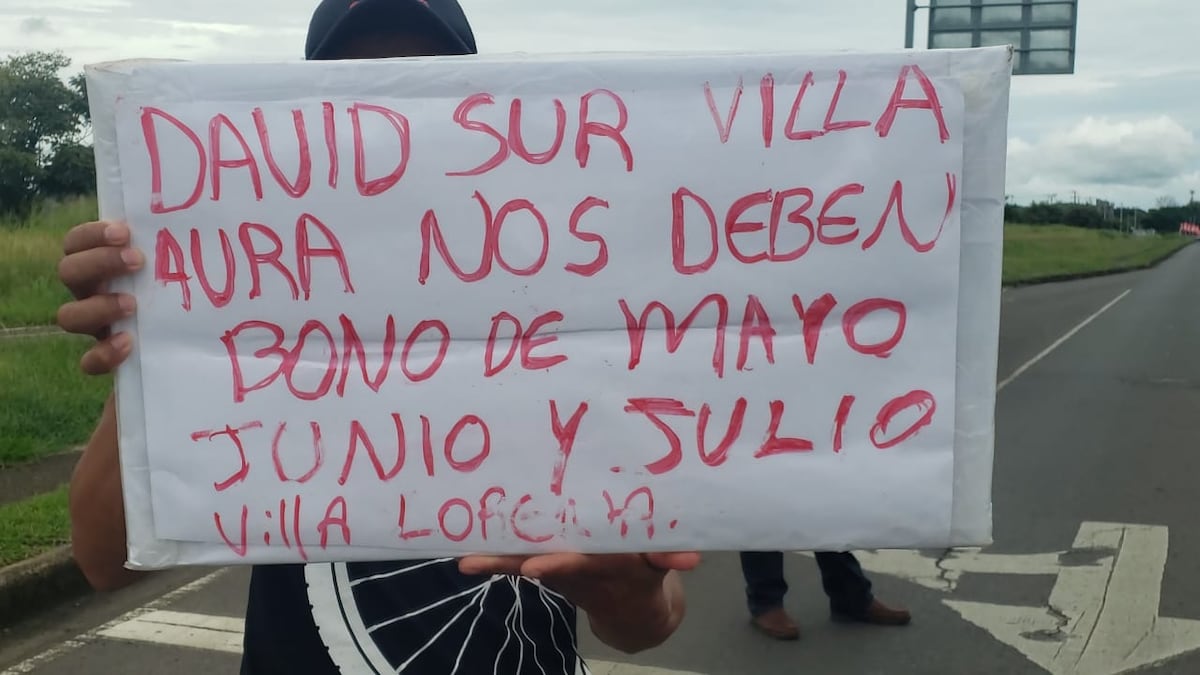 DAVID SUR VILLA
AURA NOS DEBEN
BONO DE MAYO
JUNIO Y JULIO
VillA